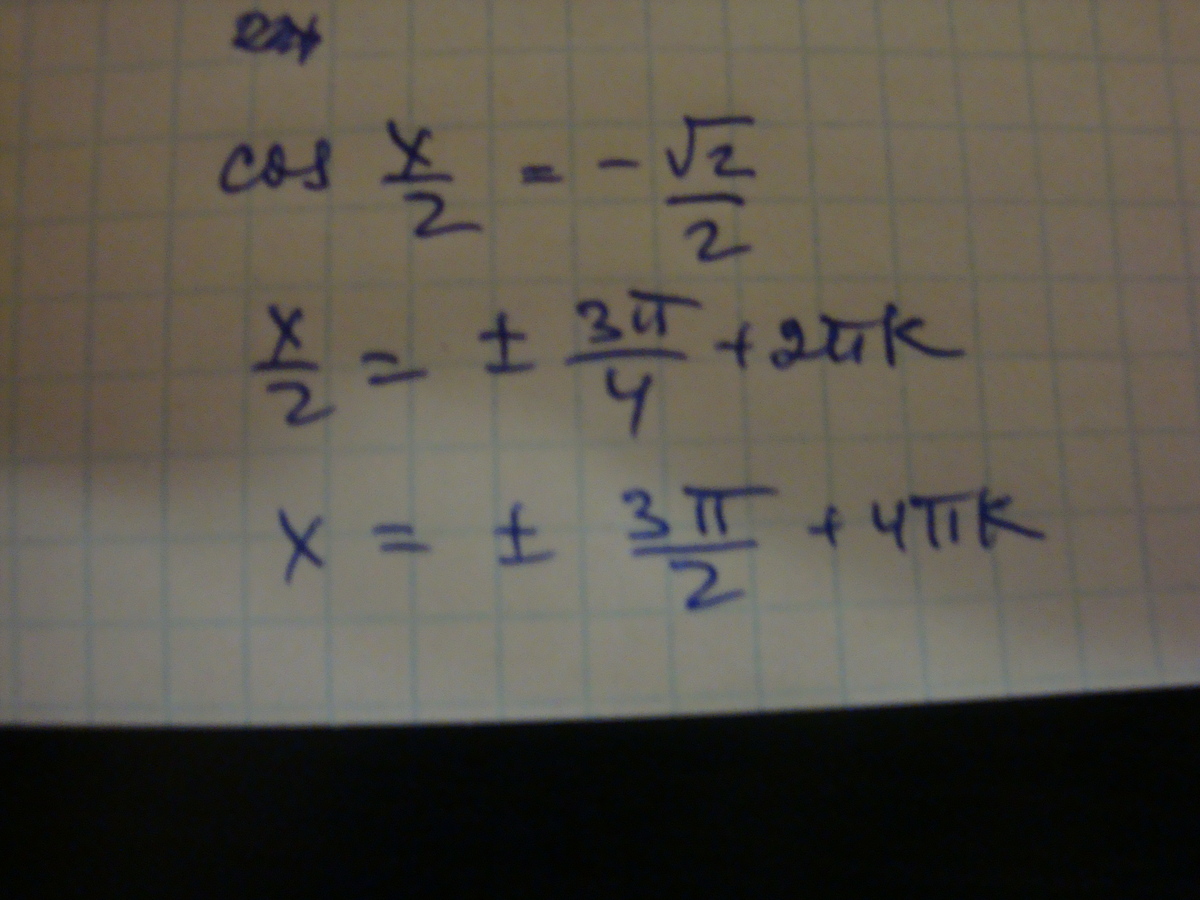 cos x/2 = - √2/2
x/2 = ± 3π/4 + 2πk
x = ± 3π/2 + 4πk